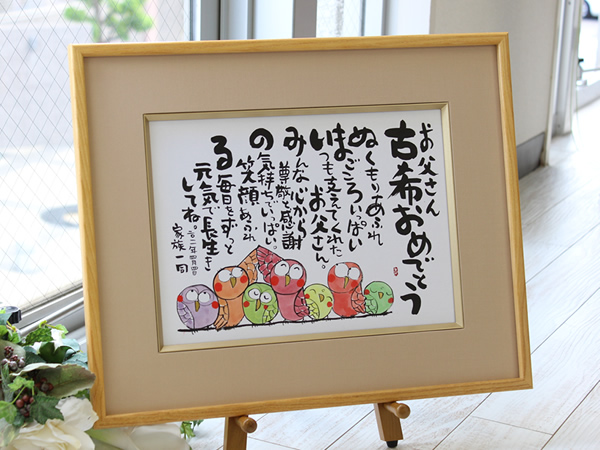 お父さん
古希おめでとう
ぬくもりあふれ
まごころいっぱい
いつも支えてくれた
お父さん
みんな心から
尊敬と感謝
の気持ちでいっぱい。
笑顔あふれ
る毎日をずっと
元気で長生き
してね。
家族一同